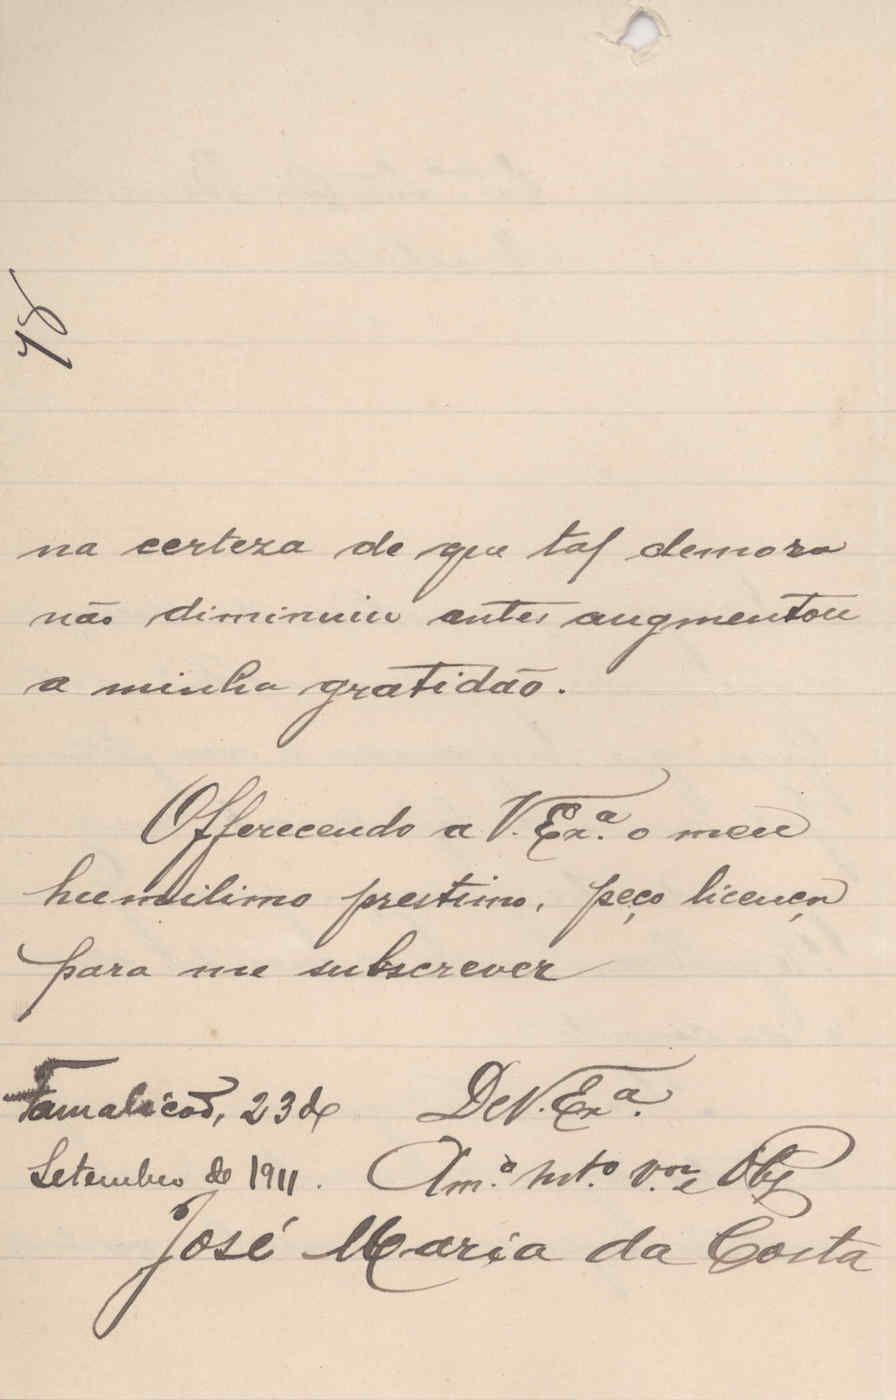 78
na certeza de que tal demora
não diminuiu antes augmentou
a minha gratidão.
Offerecendo a V. Exª. o meu
humilimo prestimo, peço licença
para me subscrever
Famalicão, 23 de
Setembro de 1911.
De V. Exª.
Am.º mt.º v.ºr e Obg
José Maria da Costa